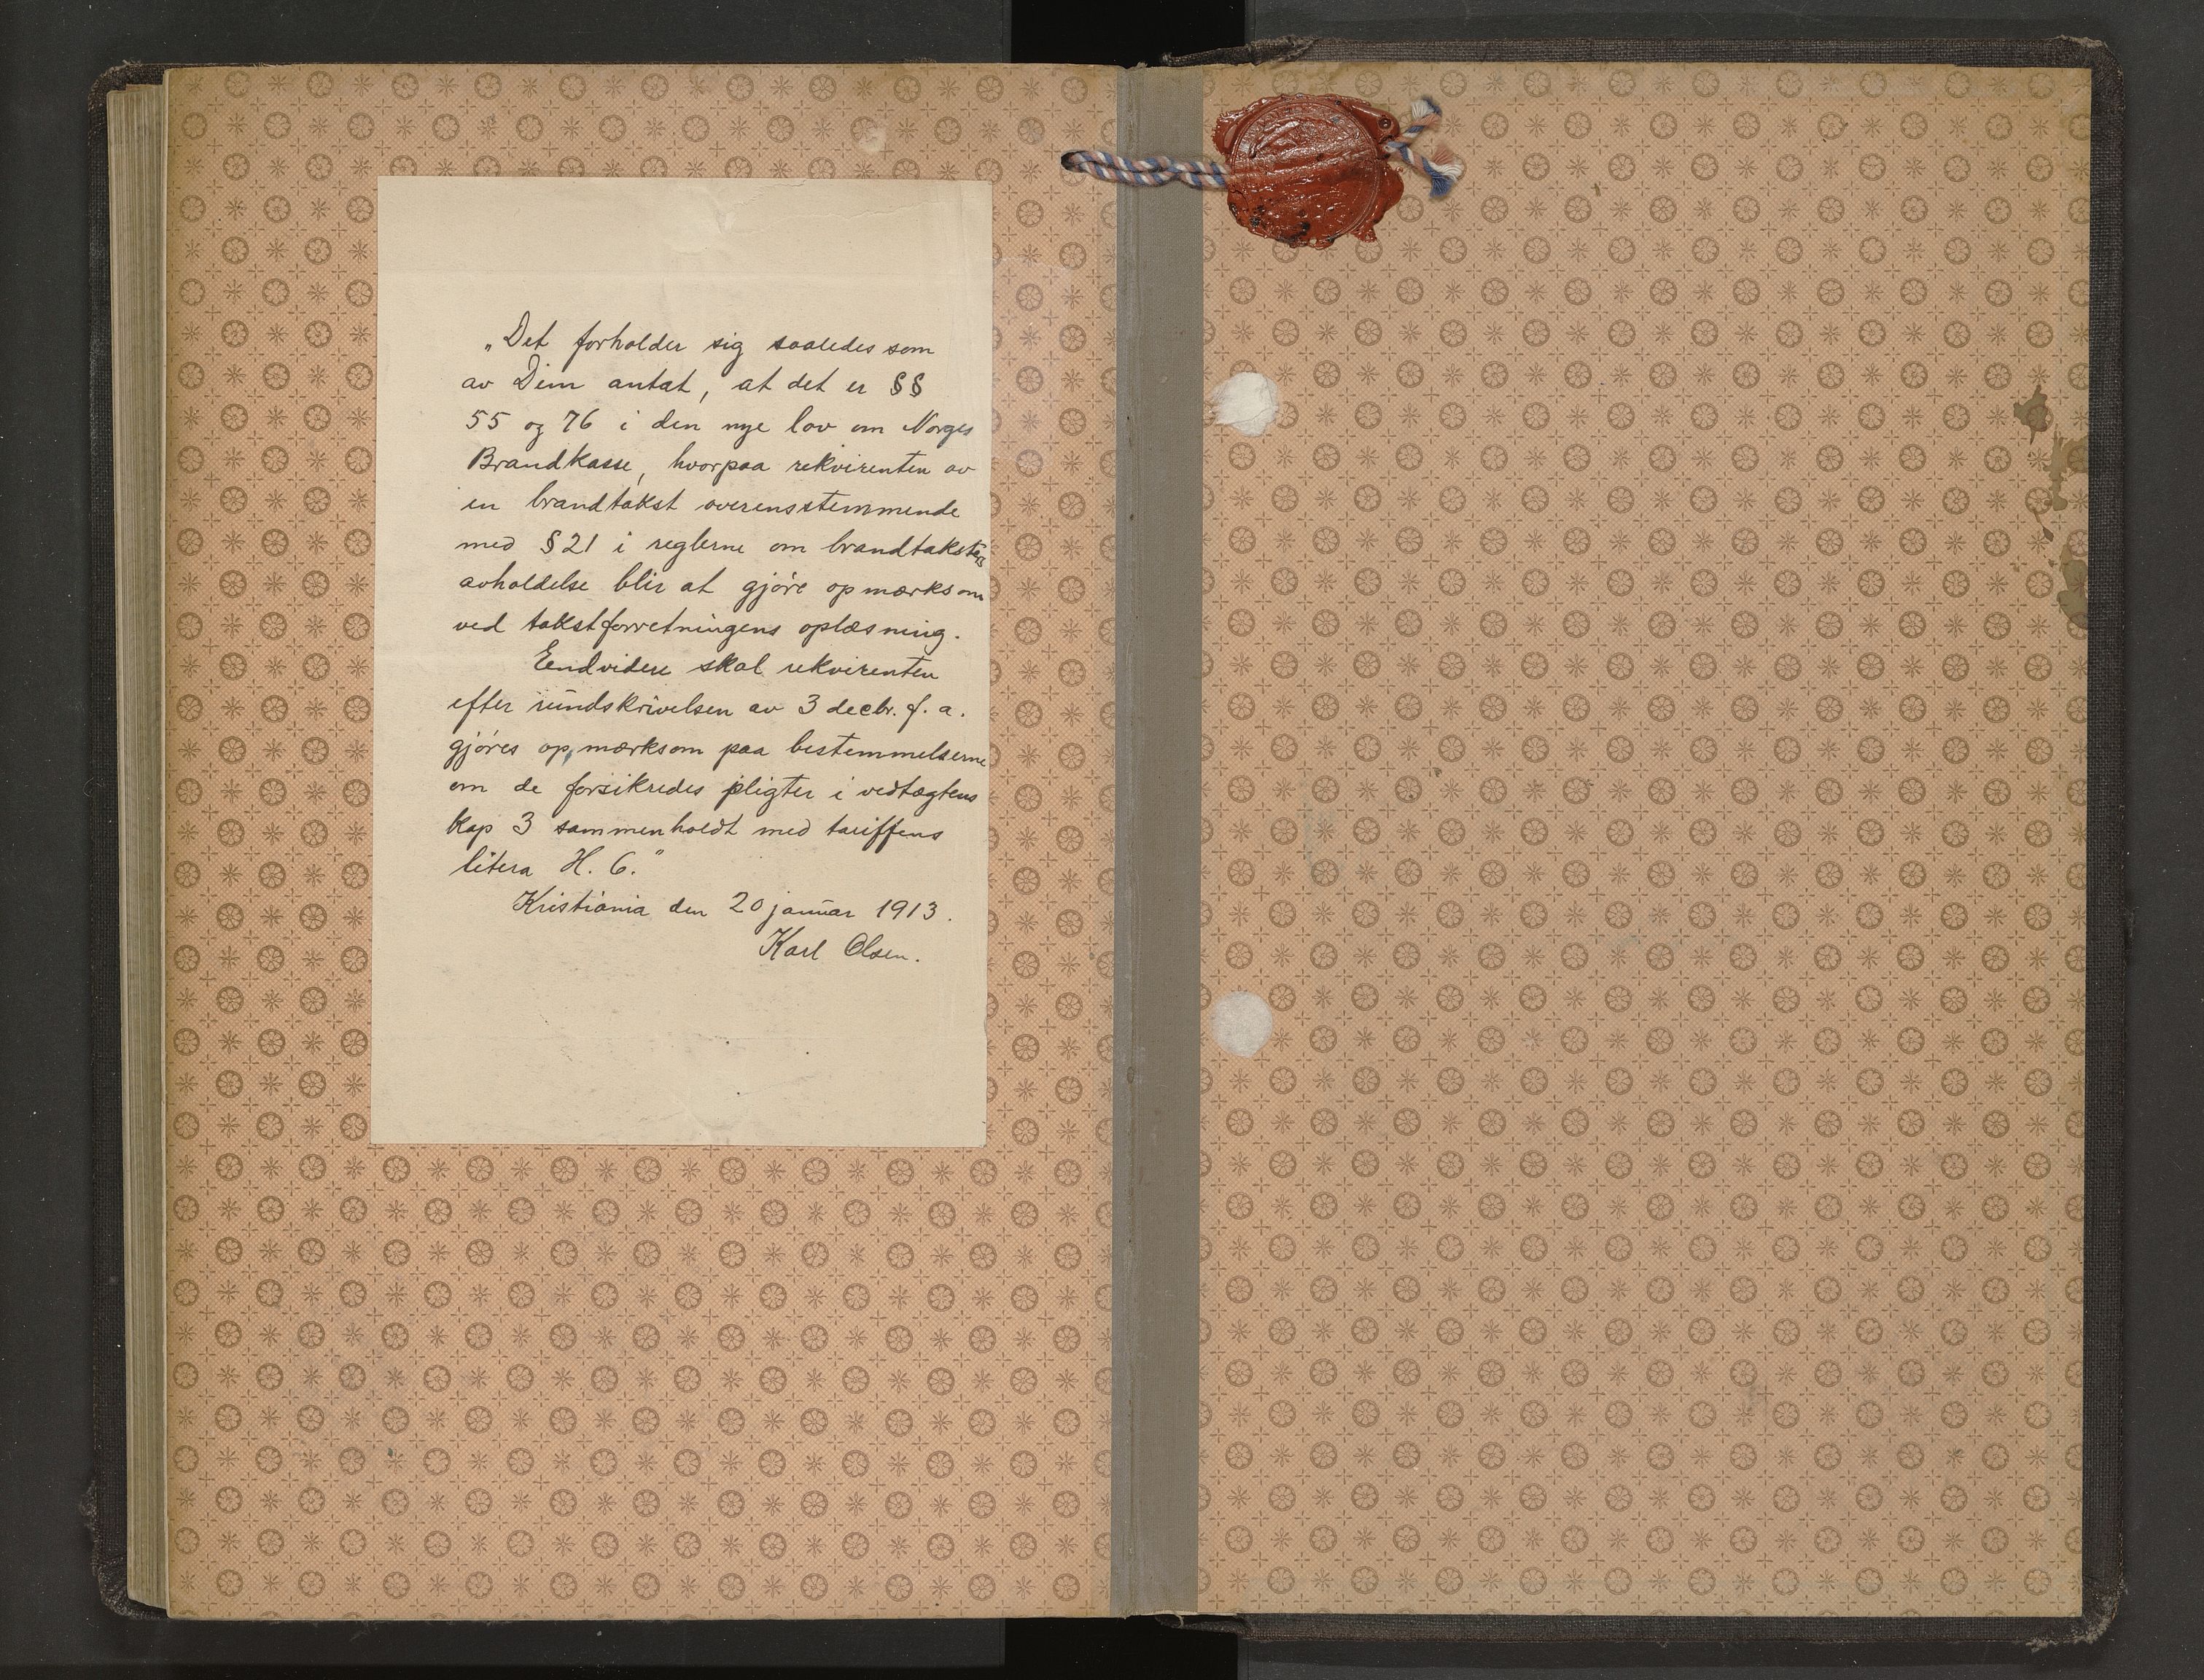 „Det forholder sig saaledes som
av Dem antat, at det er §§
55 og 76 i den nye lov om Norges
Brandkasse, hvorpaa rekvirenten av
en brandtakst overensstemmende
med § 21 i reglerne om brandtaksters
avholdelse blir at gjøre opmærksom
ved takstforretningens oplæsning.
Eendvidere skal rekvirenten
efter rundskrivelsen av 3 decbr. f. a.
gjøres opmærksom paa bestemmelserne
om de forsikredes pligter i vedtægtens
kap 3 sammenholdt med tariffens
litera H. 6."
Kristiania den 20 januar 1913.
Karl Olsen.